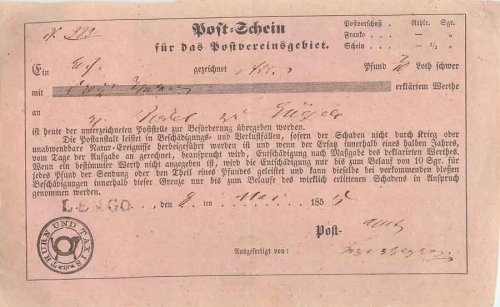 № 373
Post-Schein
für das Postvereinsgebiet.
Postvorschuß . Rthlr. Sgr.
Franko . . . — „
Schein . . . — ½ „
Ein gezeichnet Pfund Loth schwer
mit erklärtem Werthe
an
ist heute der unterzeichneten Poststelle zur Beförderung übergeben worden.
Die Postanstalt leistet in Beschädigungs- und Verlustfällen, sofern der Schaden nicht durch Krieg oder
unabwendbare Natur-Ereignisse herbeigeführt worden ist und wenn der Ersatz innerhalb eines halben Jahres,
vom Tage der Aufgabe an gerechnet, beansprucht wird, Entschädigung nach Maßgabe des deklarirten Werthes.
Wenn ein bestimmter Werth nicht angegeben ist, wird die Entschädigung nur bis zum Belauf von 10 Sgr. für
jedes Pfund der Sendung oder den Theil eines Pfundes geleistet und kann dieselbe bei vorkommenden bloßen
Beschädigungen innerhalb dieser Grenze nur bis zum Belaufe des wirklich erlittenen Schadens in Anspruch
genommen werden.
LEMGO den 2 ten 185
THURN UND TAXIS
Post-
Ausgefertigt von: